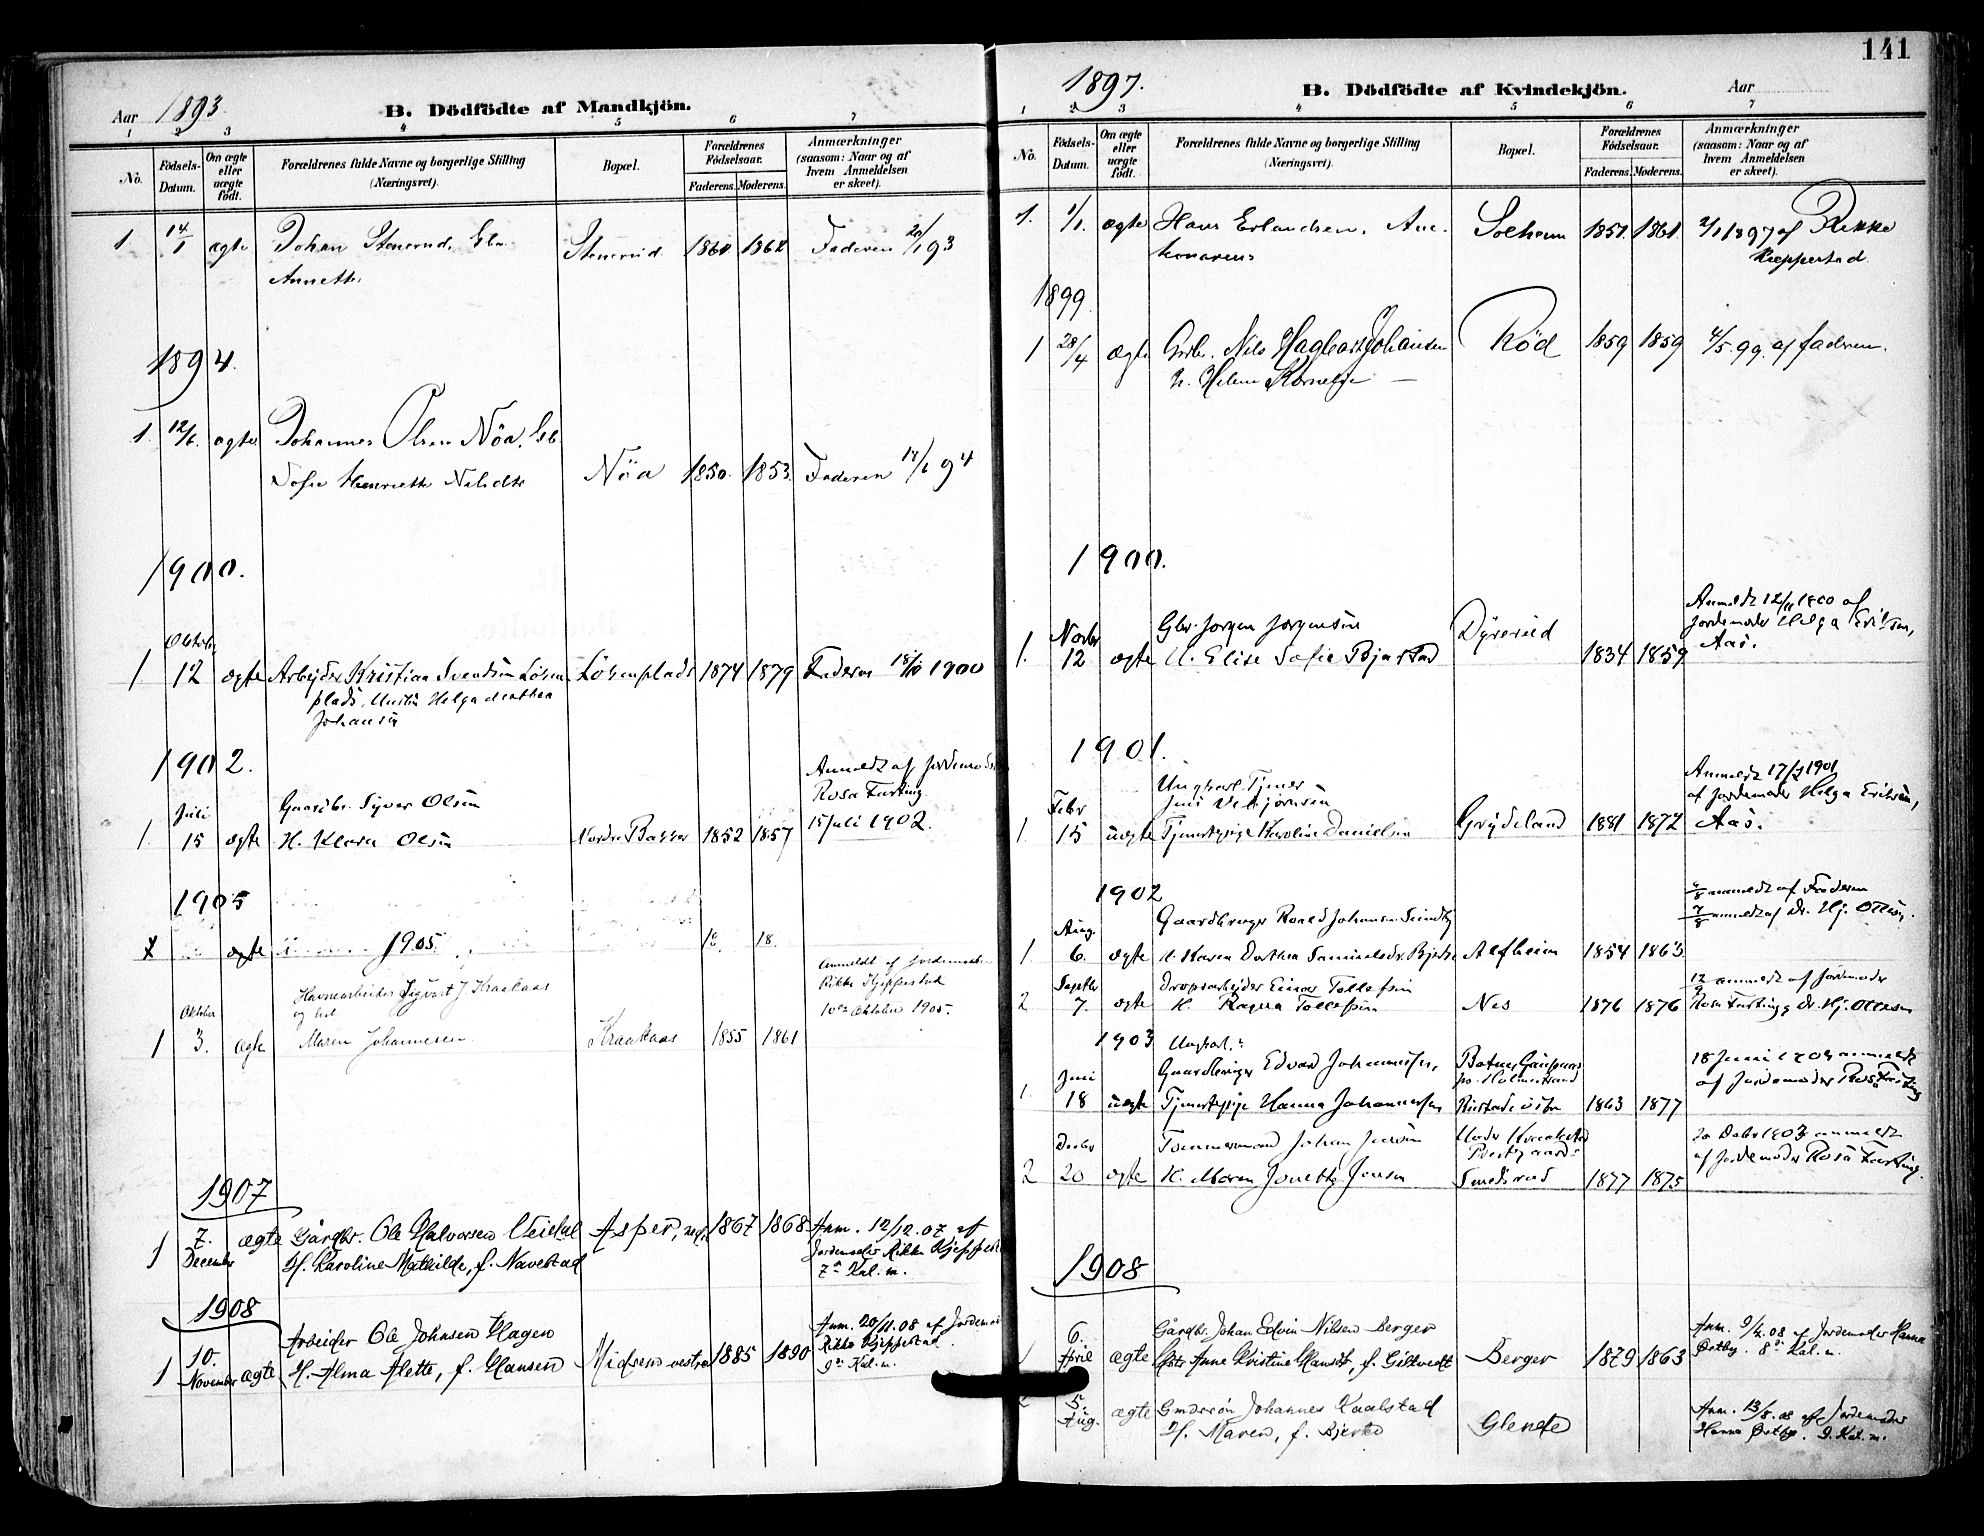 Aar 1893.
B. Dödfödte af Mandkjön.
1 2 3 4 5 6 7
No.
Födsels-Datum.
Om ægte eller uægte födt.
Forældrenes fulde Navne og borgerlige Stilling (Næringsvei).
Bopæl.
Forældrenes Födselsaar.
Faderens. Moderens.
Anmærkninger (saasom: Naar og af hvem Anmeldelsen er skeet).
1. 14/1 ægte Johan Stenerud, Stenerud 1864 1862 Faderen 20/1 93
Annette
1894.
1. 12/6. ægte Johannes Olsen Nöa, Gb.
Sofie Henriette Nilsdtr Nöa 1850. 1853. Faderen 94
1900.
Oktober
1 12 ægte Arbejder Kristian Svendsen Lösen Lösenplads 1874 1879 Faderen 18/10 1900
plads, Hustru Helga Dorthea
Johansen
1902.
Anmeldt af Jordemoder
Rosa Furting
15 Juli 1902.
Juli Gaardbr. Syver Olsen
1. 15 ægte H. Klara Olsen Nordre Bakker 1852 1857
1905
ægte 1905. 18 18.
anmeldt af Jordemoder
Rikke Kjeppestad
10de Oktober 1905.
Havnearbeider Sigvart J. Kraakaas
Oktober og hst.
1 3. ægte Maren Johannesen Kraakaas 1855 1861
1907
1 7. December ægte Gårdbr. Ole Halvorsen Veidal Asper, ned. 1867 1868 Anm. 12/12.07 af
H. Karoline Mathilde, f. Navestad Jordemoder Rikke Kjeppestad
7de Kal. m.
1908
Arbeider Ole Johnsen Hagen Anm. 20/11.08 af Jordemo
1 10. November ægte H. Alma Alette, f. Hansen Midsem vestre 1885 1890 Rikke Kjeppestad.
9de Kal. m.
141
1897.
B. Dödfödte af Kvindekjön.
Aar
1 2 3 4 5 6 7
No.
Födsels-Datum.
Om ægte eller uægte födt.
Forældrenes fulde Navne og borgerlige Stilling (Næringsvei).
Bopæl.
Forældrenes Födselsaar.
Faderens. Moderens.
Anmærkninger (saasom: Naar og af hvem Anmeldelsen er skeet).
1. 1/1. ægte Hans Erlandsen, Solheim 1857. 1861. 2/1 1897 af Rikke
Kjeppestad.
1899
1 28/4 ægte Grbr. Nils Hagbart Johansen Röd 1859 1859 4/5.99. af faderen.
h. Helene Kornelje
1900.
Anmeldt 12/11 1900 af
Jordemoder Helga Eriksen,
Aas.
Novbr Gbr. Jørgen Jørgensen Dyrerud
1. 12 ægte H. Elise Sofie Bjastad 1834 1859
1901.
Anmeldt 17/2 1901
af Jordemoder Helga Eriksen,
Aas.
Ungkarl Tjener
Febr Jens Vebjörnsen
1 15 uægte Tjenestepige Karoline Danielsen Grydeland 1881 1872
1902
6/8 anmeldt af Faderen
7/8 anmeldt af Dr. Hj. Ottesen.
Aug. Gaardbruger Roald Johansen Sundby
1 6. ægte H. Karen Dorthea Samuelsdr. Bjerke Alfheim 1854 1863
Septbr Dragsarbejder Einar Tollefsen 12/9 anmeldt af Jordemoder
2 7. ægte H. Ragna Tollefsen Nes 1876 1876 Rosa Furting, Dr. Hj. Ottesen
1903 Ungkarl.
Juni Gaardbruger Edvard Johannessen, Botne,
po. Holmestrand 18 Juni 1903 anmeldt
af Jordemoder Rosa Furting
1. 18 uægte Tjenestepige Hanna Johannessen 1863 1877
Decbr Tømmermand Johan Jensen Under Kroekstad
Prestegaard 20 Decbr 1903 anmeldt
af Jordemoder Rosa Furting.
2 20 ægte H. Maren Jonette Jensen Smedsrud 1877 1875
1908
6. April ægte Gårdbr. Johan Edvin Nilsen Berger
Anne Kristine Hansdtr, f. Giltvedt Berger 1879 1863 Anm. 9/4.08 af Jordemoder Hanna
Østby. 8de Kal. m.
2 5. Aug. ægte Johannes Kaalstad
H. Maren, f. Bjerke Glenne Anm. 13/8.08 af Jordemoder
Hanna Østby. 9. Kal. m.